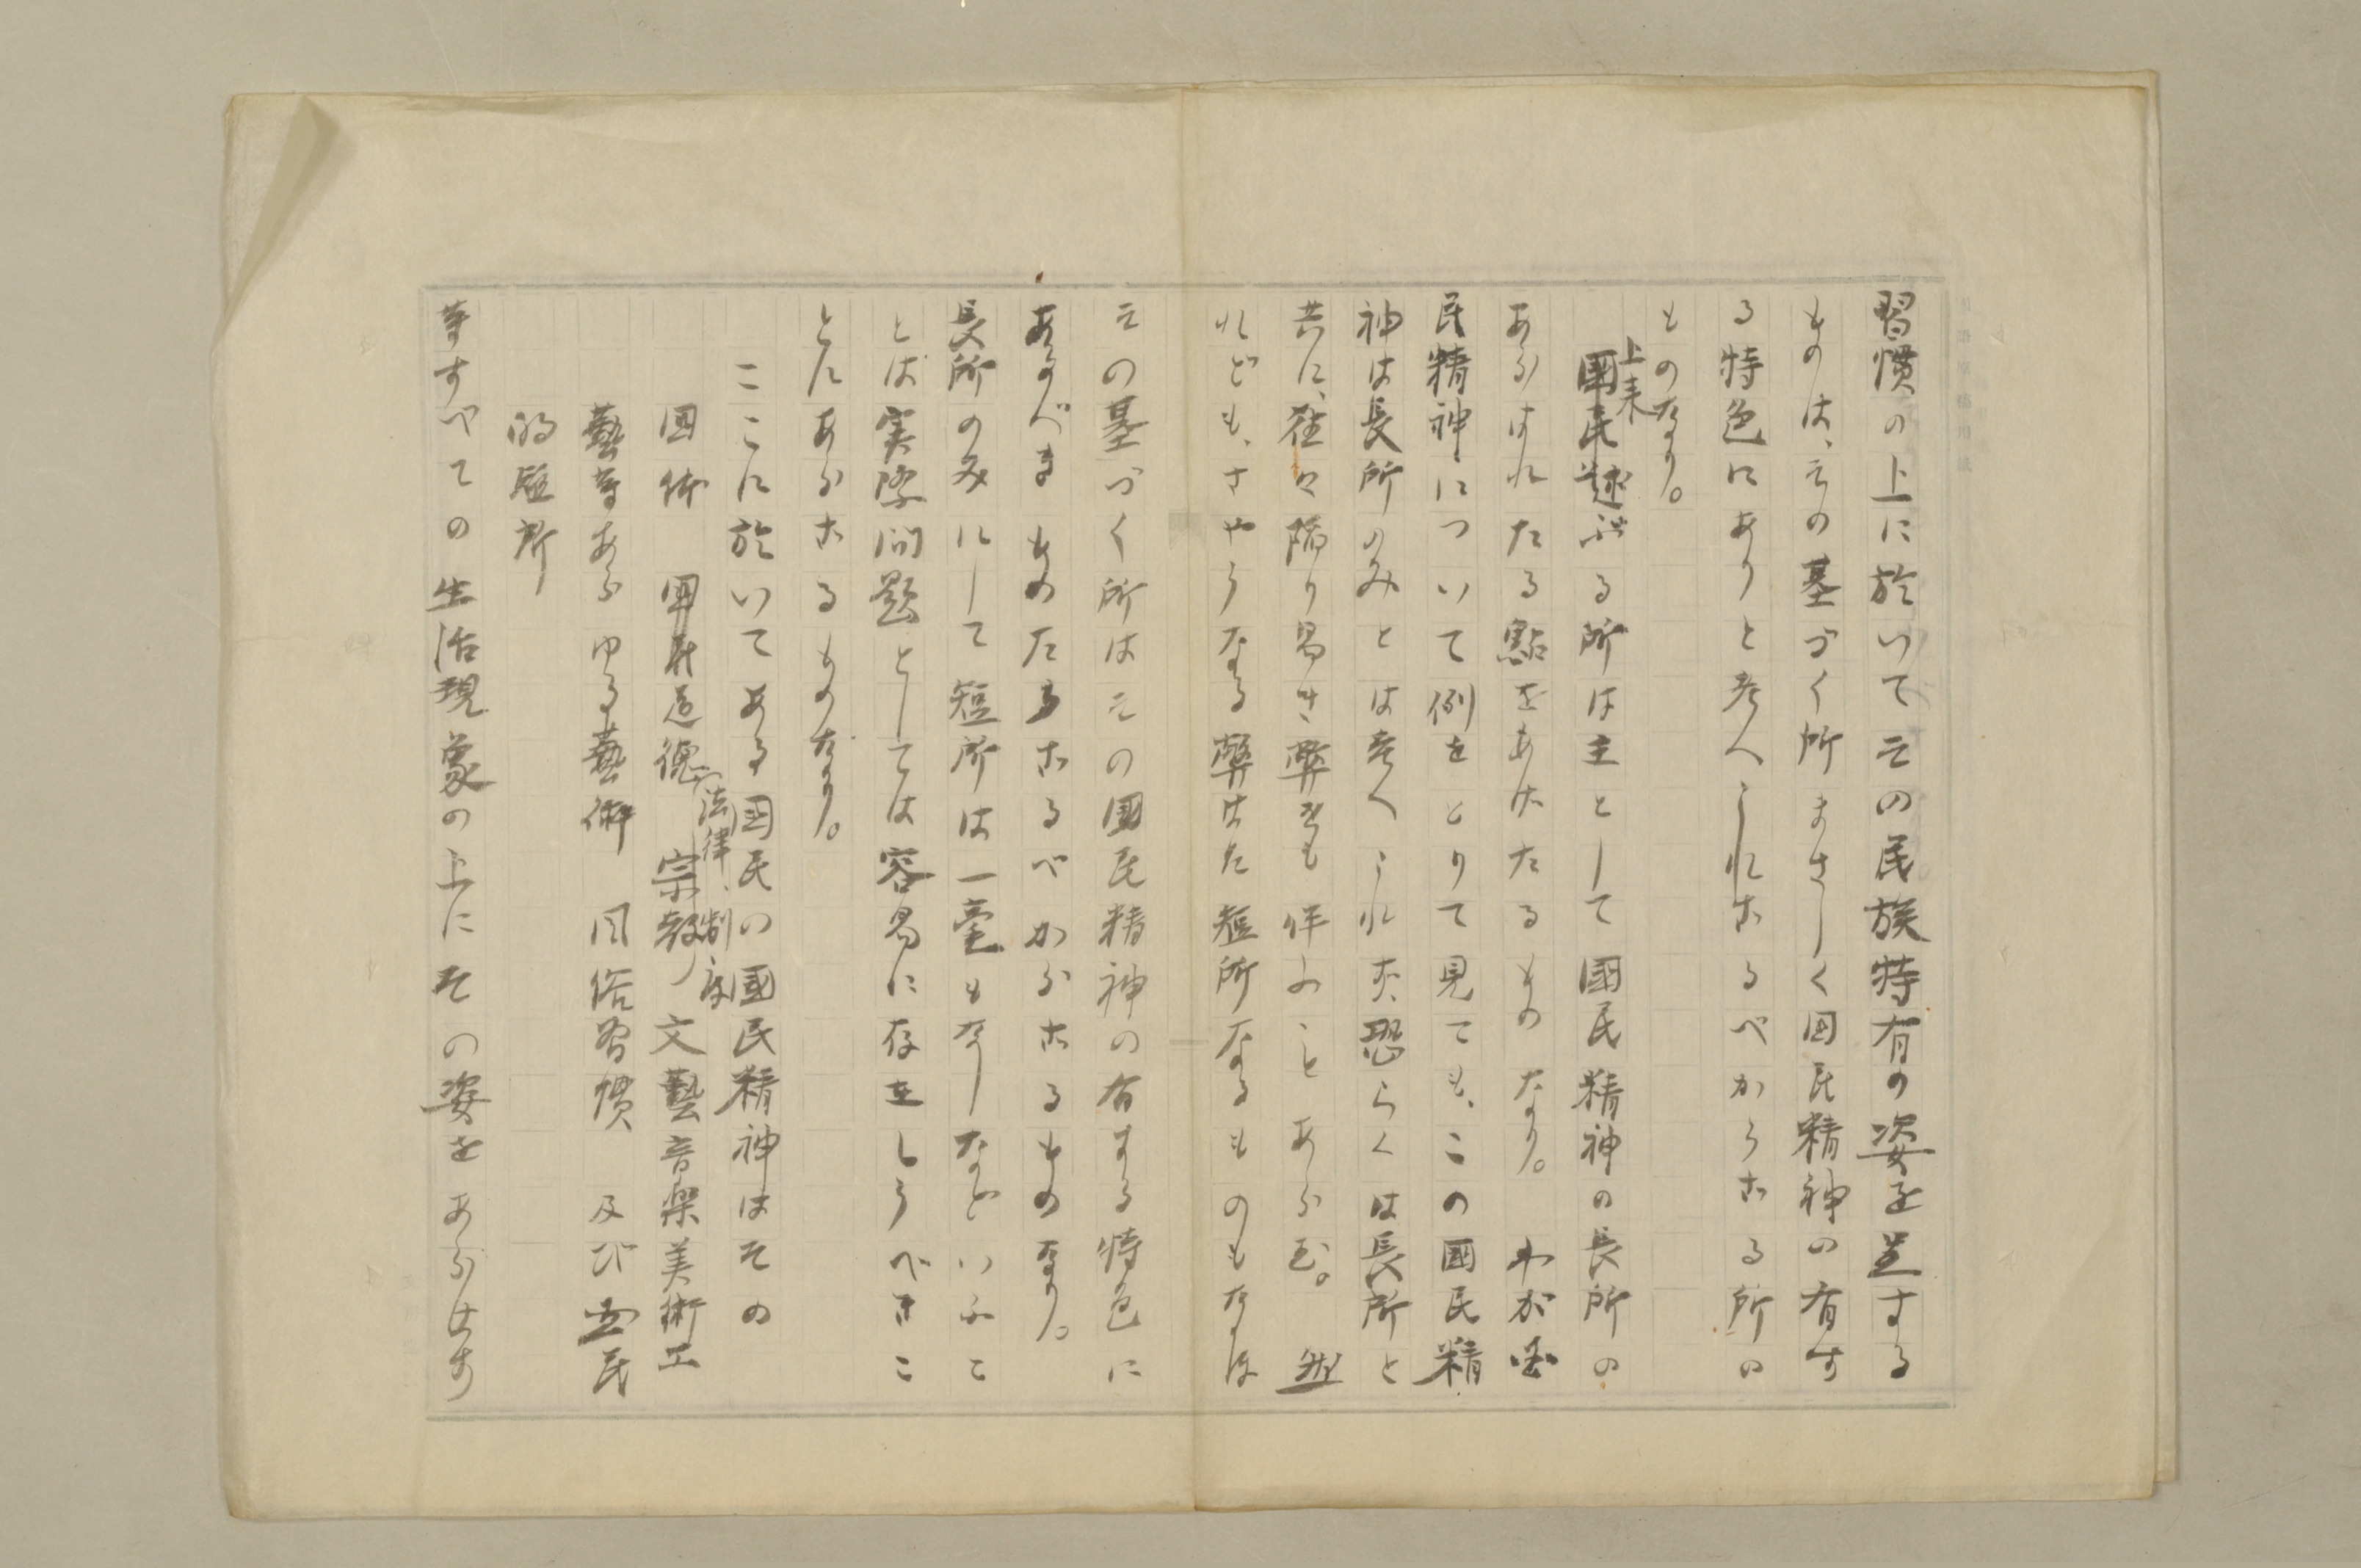 習慣の上に於いてその民族特有の姿を呈する
ものは、その基づく所まさしく国民精神の有す
る特色にありと考へられざるべからざる所の
ものなり。
上来
國民述ぶる所は主として國民精神の長所の
あらはれたる點をあげたるものなり。わが国
民精神について例をとりて見ても、この國民精
神は長所のみとは考へられず、恐らくは長所と
共に、往々陥り易き弊をも伴ふことあらむ。然
れども、さやうなる弊また短所なるものもなほ
その基づく所はその國民精神の有する特色に
あるべきものたらざるべからざるものなり。
長所のみにして短所は一毫もなしなどいふこ
とは実際問題としては容易に存在しうべきこ
とにあらざるものなり。
ここに於いてある國民の國民精神はその
国体 国民道徳 宗教 文藝音樂美術工
法律、制度
藝等あらゆる藝術 風俗習慣 及び国民
的
等すべての生活現象の上にその姿をあらはす